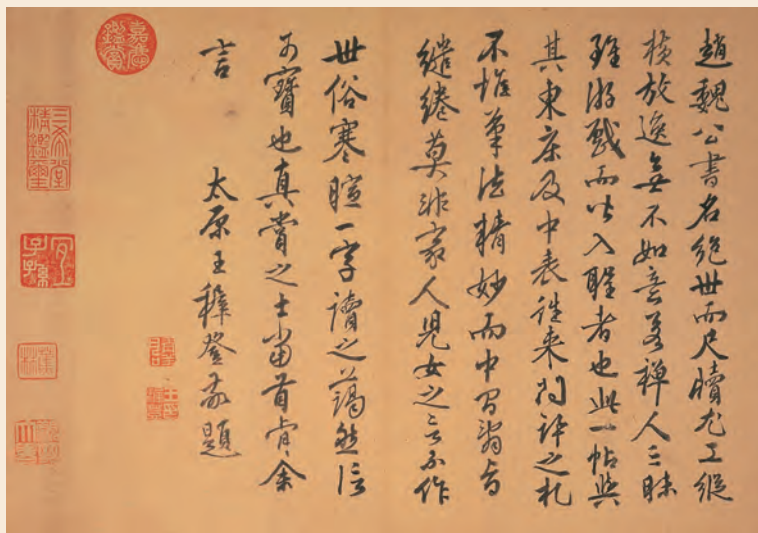 趙魏公書名絶世而尺牘尤工縱
横放逸無不如意若禅人三昧
雖游戲而皆入聖者也此一帖與
其東床及中表往来問訊之札
不惟筆法精妙而中間
繾綣莫非家人兒女之言不作
世俗寒暄一字讀之藹然信
可寶也真賞之士當首肯余
言
太原王穉登敬題
嘉慶鑑賞
三希堂精鑑璽
宜子孫
蕉林